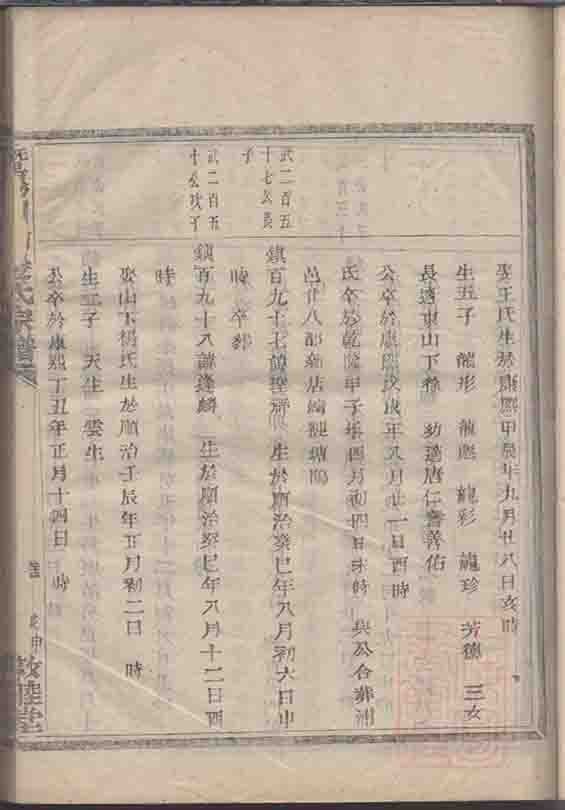 娶王氏生於康熙甲辰年九月廿八日亥時
生五子 龍彤 龍彪 龍彩 龍珍 芳德 三女
長適東山下蔡 幼適唐仁詹善佑
公卒於康熙戊戌年八月廿一日酉時
氏卒於乾隆甲子年四月初四日未時 與公合葬
邑廿八都新店
武二百五
十七公長
子
鎮百九十七諱 生於順治癸巳年八月初六日申
時 卒
武二百五
十 公次子
鎮百九十八諱逢麟 生於順治癸巳年八月十二日酉
時
娶山下楊氏生於順治壬辰年正月初二日 時
生二子 天生 雲生
公卒於康熙丁丑年正月十四日 時
氏宗譜
敦睦堂